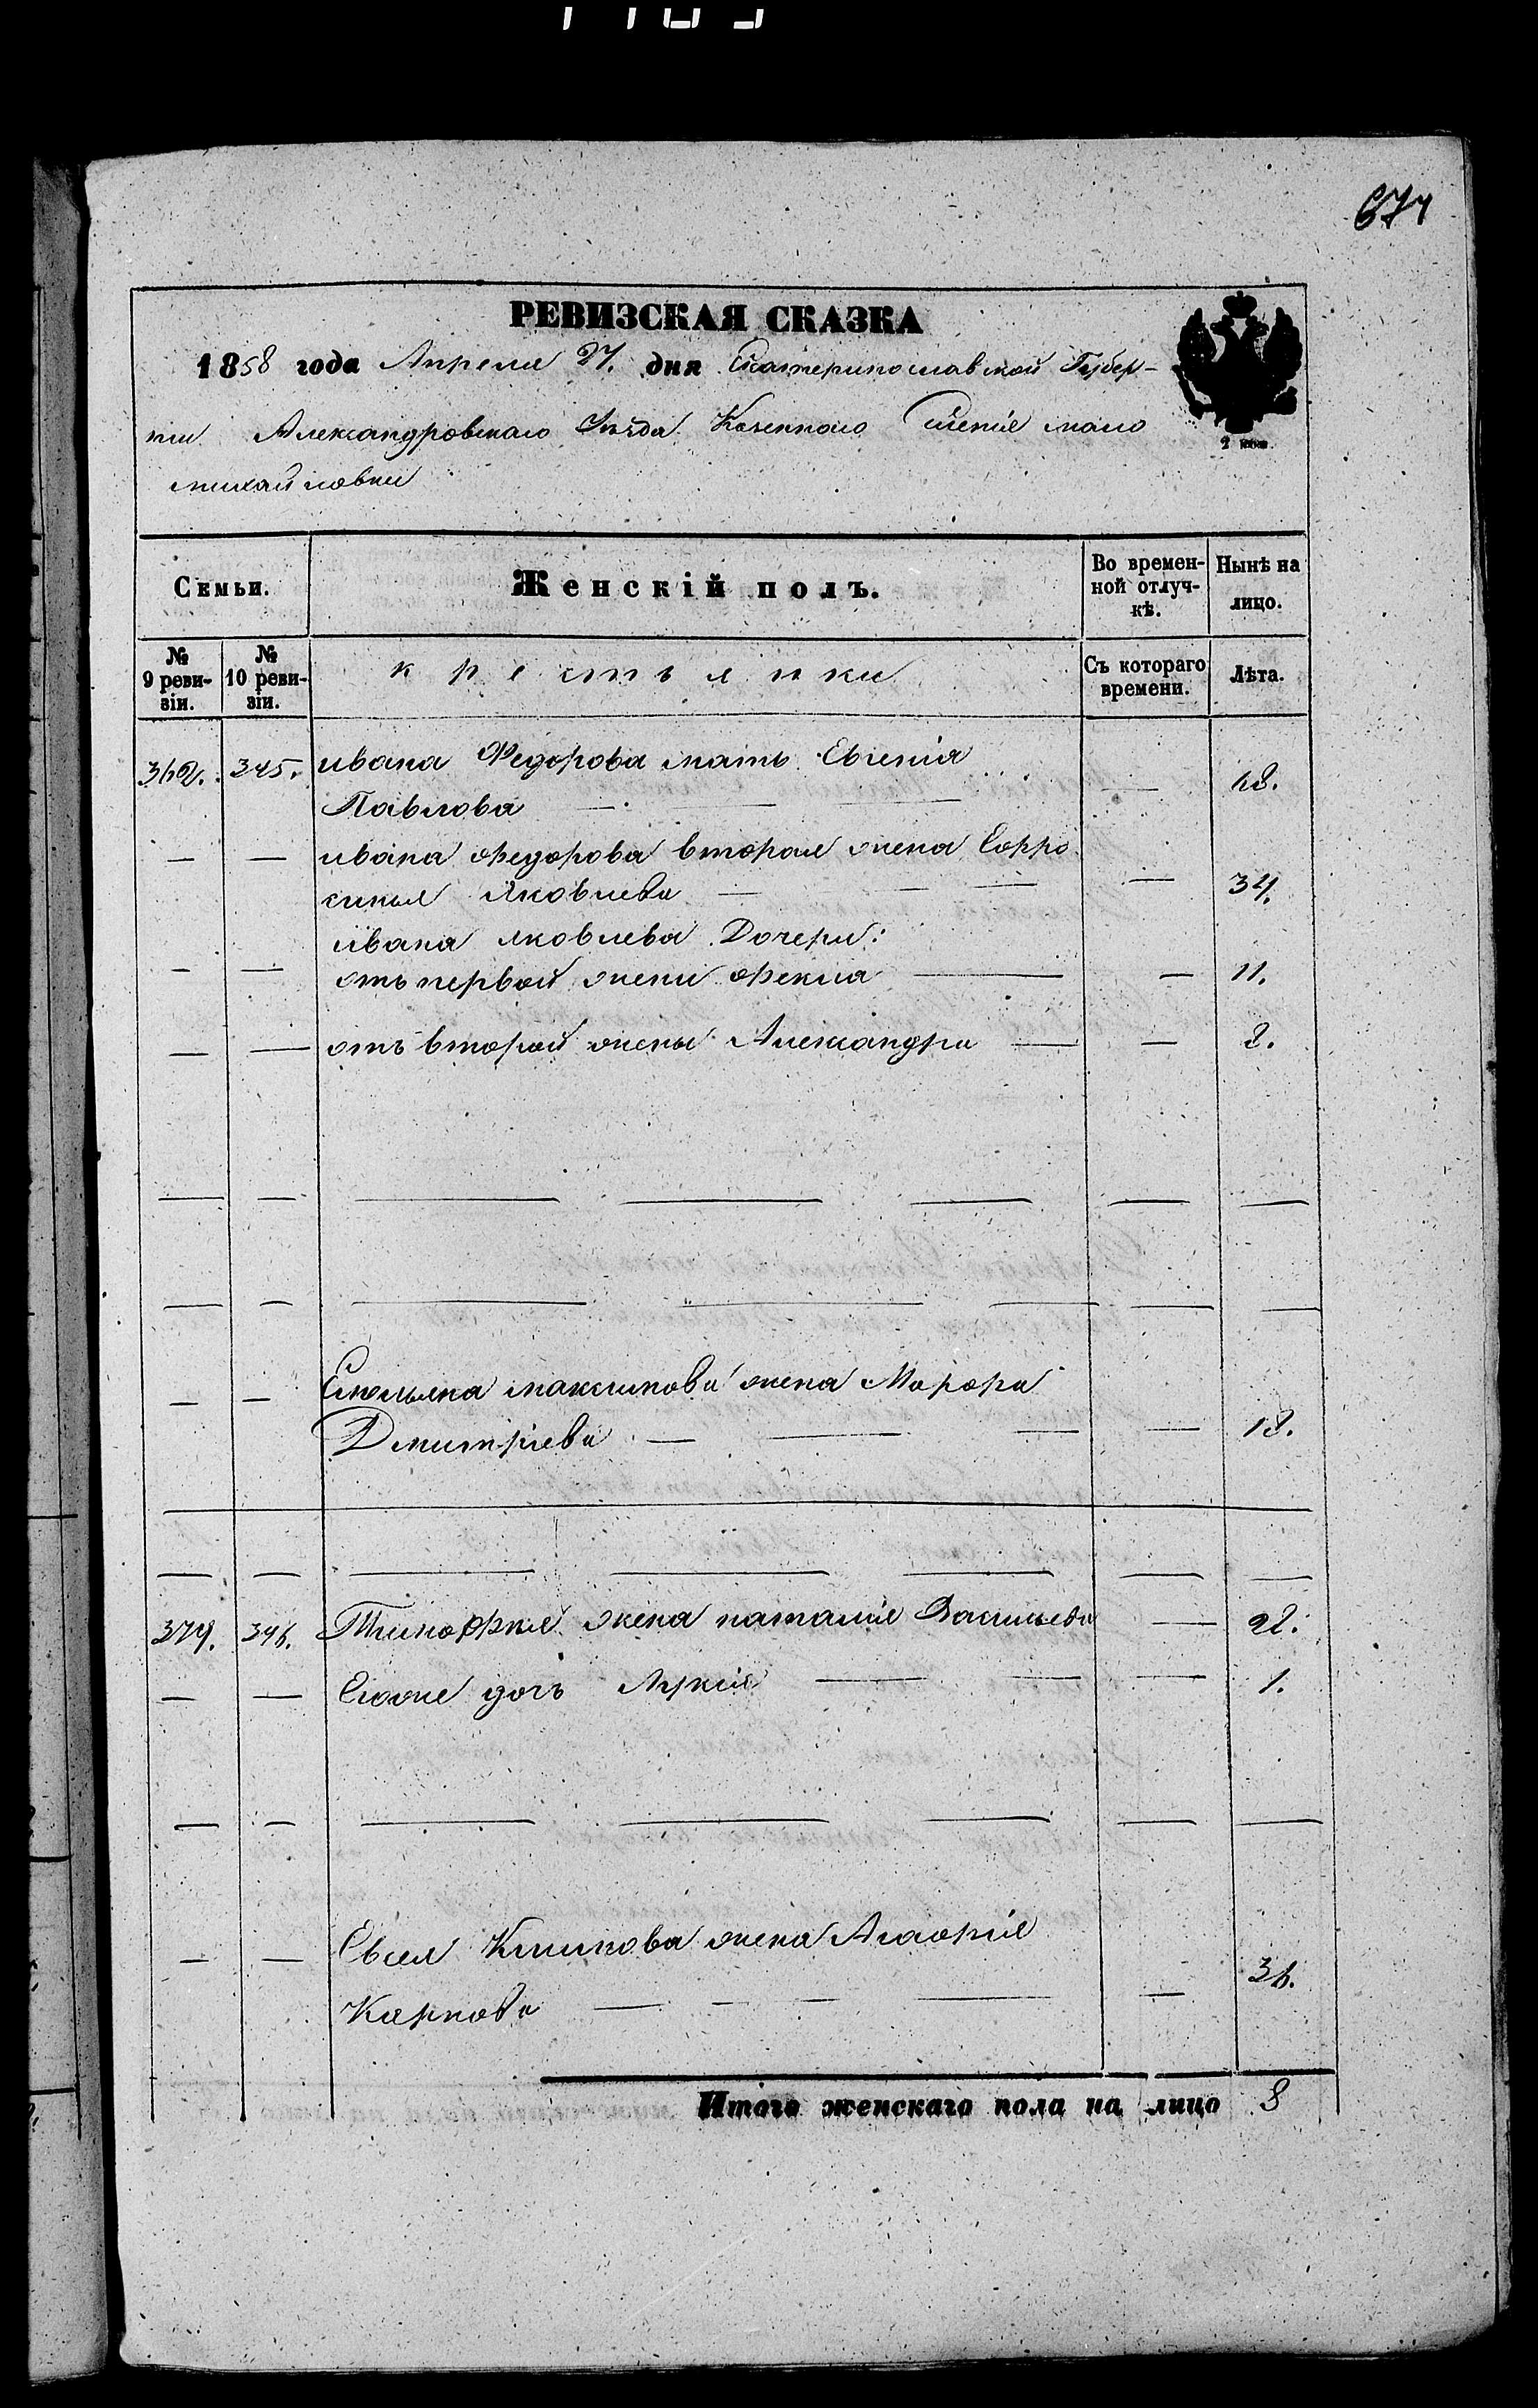 РЕВИЗСКАЯ СКАЗКА
1858 года Апреля 27. дня Екатеринославской Губер-
нии Александровскаго Уѣзда Казеннаго Селенія мало
михайловки
Семьи. Женскій полъ. Во времен-ной отлуч-кѣ. Нынѣ на лицо.
№ 9 реви-зіи. № 10 реви-зіи. крестьянки Съ котораго времени. Лѣта.
362. 345. ивана Федорова мать Евгенія
Павлова — — — — 68.
— — ивана федорова вторая жена Ефро
синья Яковлева — — — — 34.
ивана яковлева Дочери:
— — отъ первой жени фекла — — 11.
— — отъ второй жены Александра — — 8.
— — — — — — —
— — — — — — —
— — Емельяна максимова жена Марфа
Дмитріева — — — — 18.
— — — — — — —
374. 346. Тимофея жена наталія Васильева — 22.
— — Егоже дочь Лукія — — — 1.
— — — — — — —
— — Евсея Климова жена Агафія
Карпова — — — — — 36.
Итого женскаго пола на лицо 8